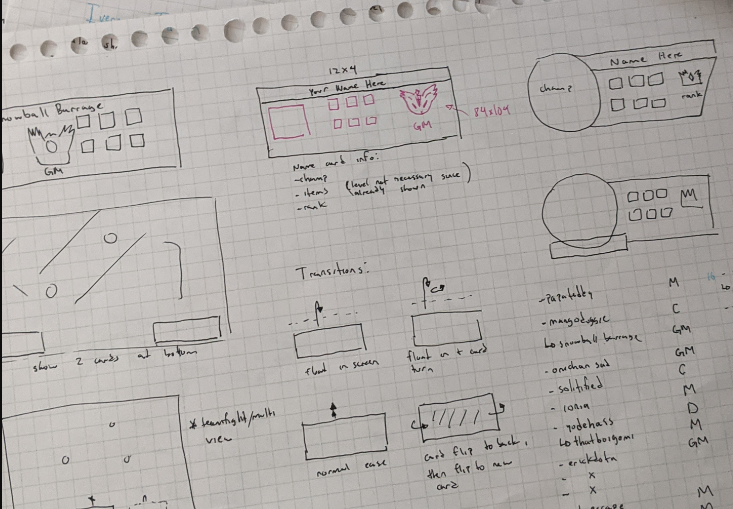 12x4
Your Name Here
GM
84x104
Name card info:
- champ
- items
- rank
(level not necessary since
already shown)
Snowball Barrage
GM
Name Here
champ
rank
M
show 2 cards at bottom
Transitions:
float in screen
float in + card
turn
normal ease
card flip to back,
then flip to new
card
* teamfight/multi
view
- papateddy M
- mangodoggie C
snowball barrage GM
- onichan sad GM
- solitified C
- ionia M
- yodehass D
thatboigomi M
- erickdota GM
- x
- x
M
M